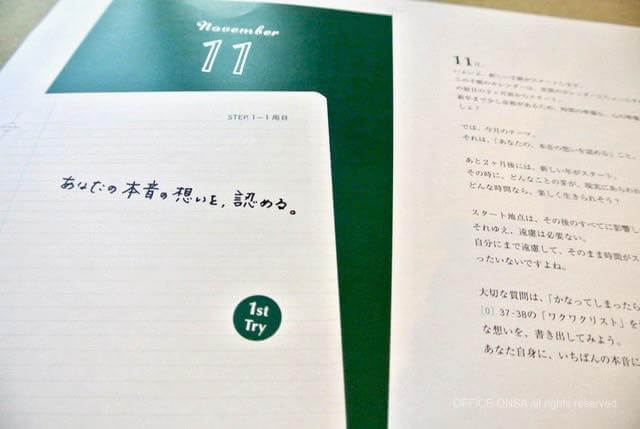 November
11
STEP. 1−1周目
あなたの本音の想いを、認める。
1st
Try
11月。
いよいよ、新しい手帳がスタートします。
では、今月のテーマ。
それは、「あなたの、本音の想いを認める」こと。
あと2ヶ月後には、新しい年がスタート。
その時に、どんなことの芽が、現実にあらわれ
どんな時間なら、楽しく生きられそう？
スタート地点は、その後のすべてに影響し
それゆえ、遠慮は必要ない。
自分にまで遠慮して、そのまま時間がス
ったいないですよね。
大切な質問は、「かなってしまったら
[0] 37-38の「ワクワクリスト」を
な想いを、書き出してみよう。
あなた自身に、いちばんの本音に
OFFICE ONSA all rights reserved.